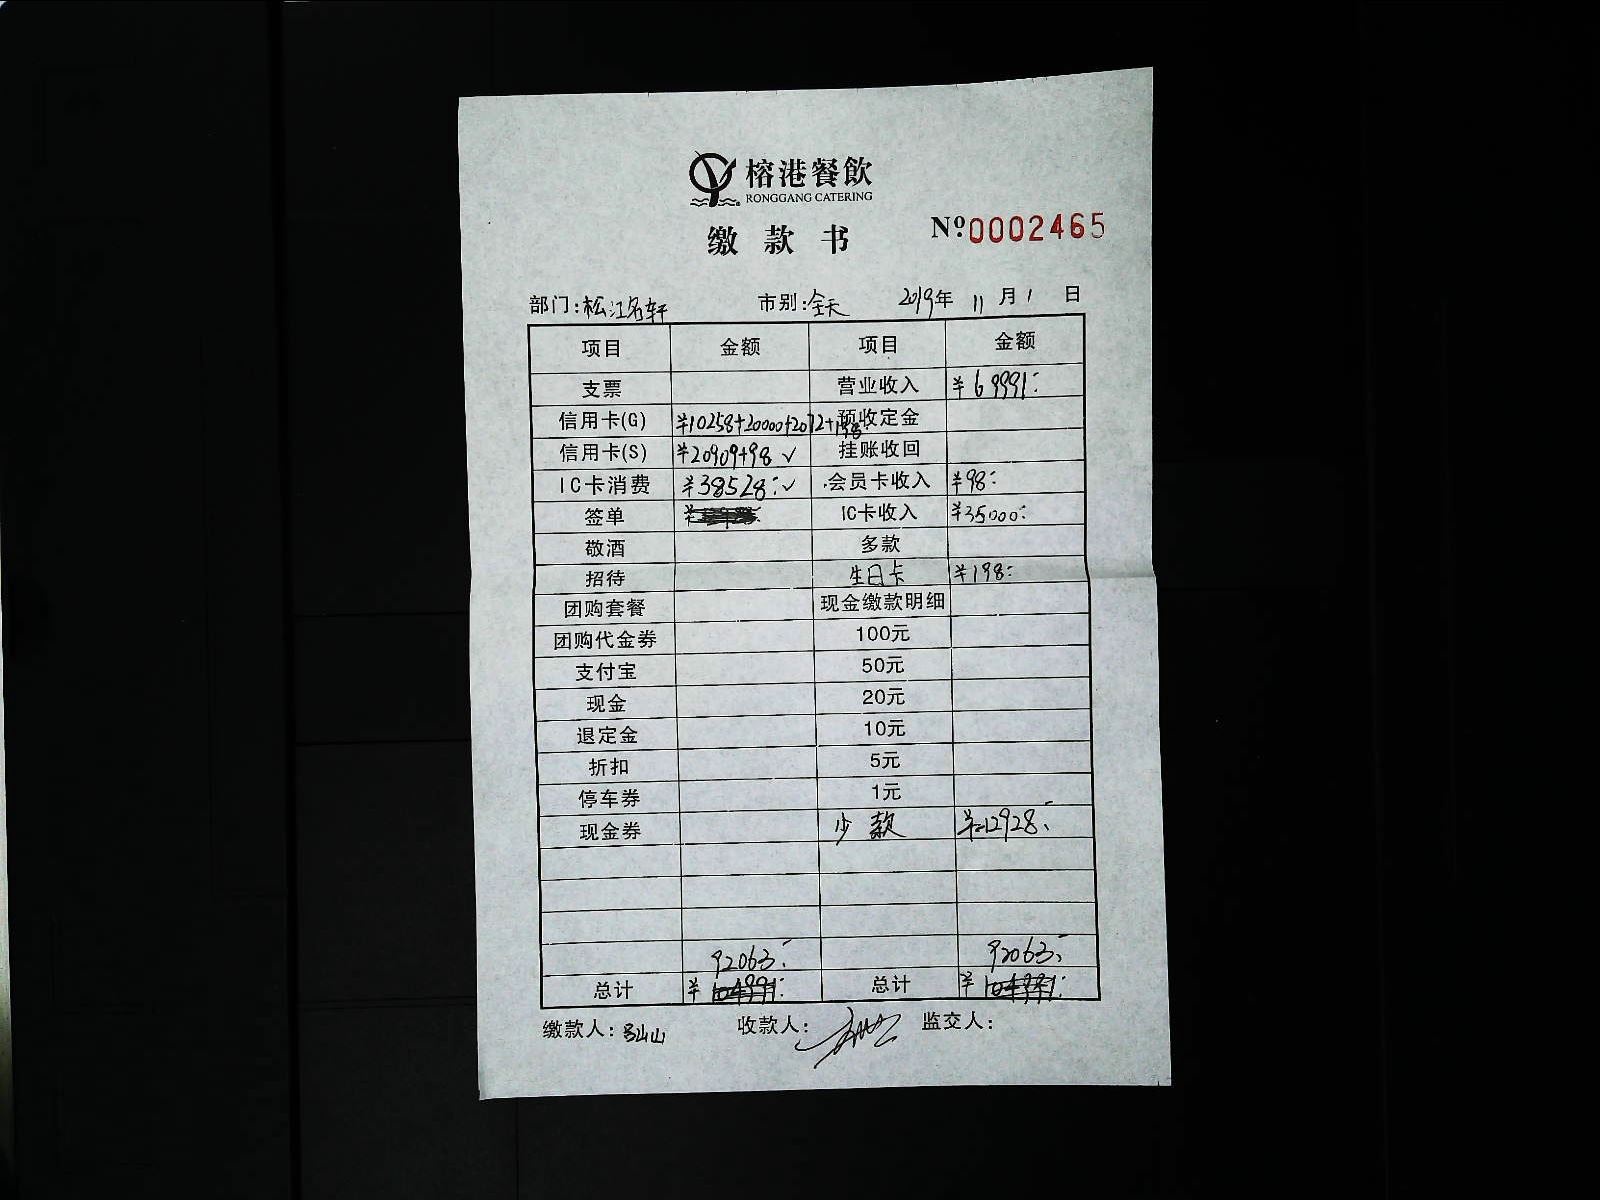 榕港餐飲
RONGGANG CATERING
缴款书
Nº0002465
部门:松江名轩 市别:全天 2019年11月1日
项目 金额 项目 金额
支票 营业收入 ¥69991:
信用卡(G) ¥10258+20000+2072+198 预收定金
信用卡(S) ¥20909+98 ✓ 挂账收回
IC卡消费 ¥38528:✓ 会员卡收入 ¥98:
签单 ¥ IC卡收入 ¥35000:
敬酒 多款
招待 生日卡 ¥198:
团购套餐 现金缴款明细
团购代金券 100元
支付宝 50元
现金 20元
退定金 10元
折扣 5元
停车券 1元
现金券 少款 ¥-12928:
92063: 92063:
总计 ¥104991: 总计 ¥104991:
缴款人: 收款人: 监交人: